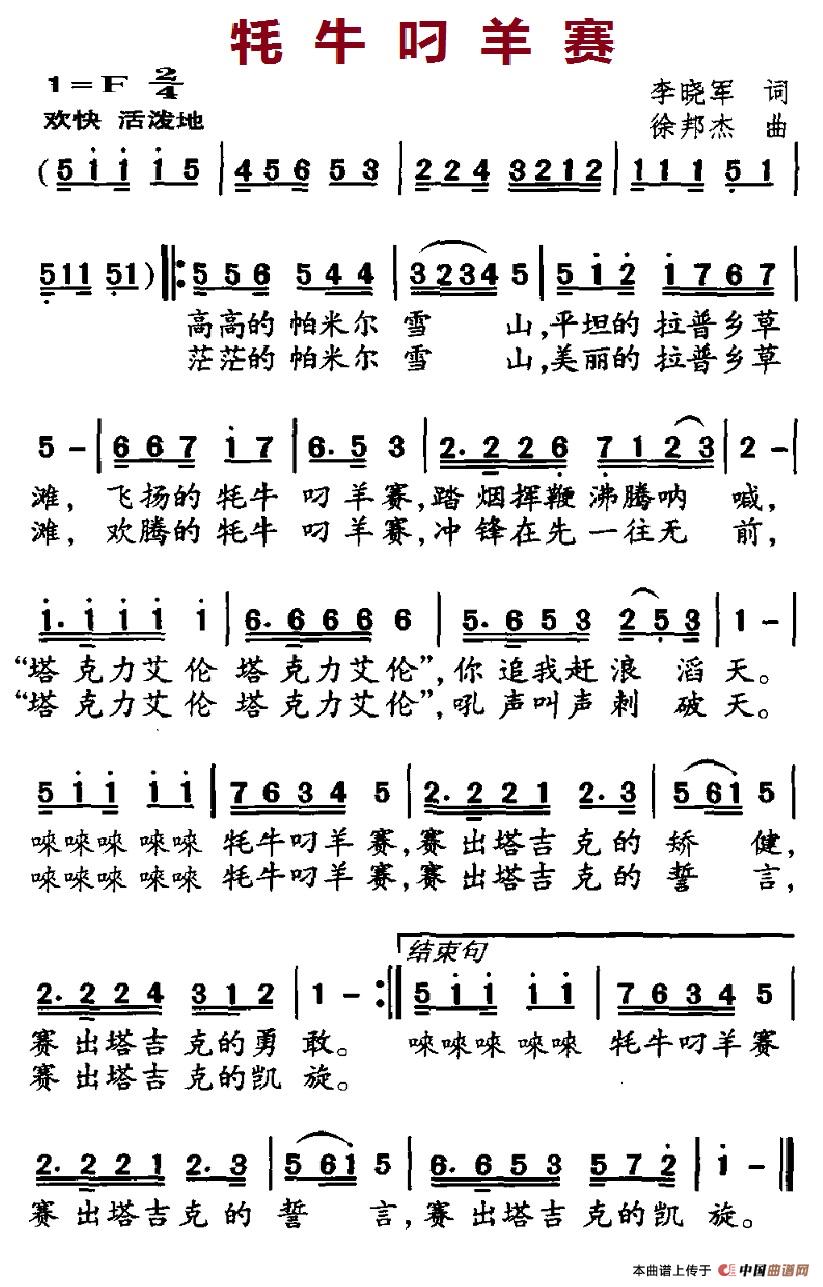 牦牛叼羊赛
1=F 2/4
李晓军 词
欢快 活泼地
徐邦杰 曲
(5 i i i 5 | 4 5 6 5 6 5 3 | 2 2 4 3 2 1 2 | 1 1 1 5 1 |
5 1 1 5 1) |: 5 5 6 5 4 4 | 3 2 3 4 5 | 5 i 2 i 7 6 7 |
高高的 帕米尔 雪 山,平坦的 拉普乡草
茫茫的 帕米尔 雪 山,美丽的 拉普乡草
5 - | 6 6 7 i 7 | 6. 5 3 | 2. 2 2 6 7 1 2 3 | 2 - |
滩, 飞扬的 牦牛 叼羊赛,踏烟挥鞭 沸腾呐 喊,
滩, 欢腾的 牦牛 叼羊赛,冲锋在先 一往无 前,
i. i i i i | 6. 6 6 6 6 6 | 5. 6 5 3 2 5 3 | 1 - |
“塔克力艾伦 塔克力艾伦”,你追我赶浪 滔天。
“塔克力艾伦 塔克力艾伦”,吼声叫声刺 破天。
5 i i i i | 7 6 3 4 5 | 2. 2 2 1 2. 3 | 5 6 i 5 |
唻唻唻 唻唻 牦牛叼羊赛,赛出塔吉克的矫 健,
唻唻唻 唻唻 牦牛叼羊赛,赛出塔吉克的誓 言,
结束句
2. 2 2 4 3 1 2 | 1 - :| 5 i i i i | 7 6 3 4 5 |
赛出塔吉克的勇敢。 唻唻唻 唻唻 牦牛叼羊赛
赛出塔吉克的凯旋。
2. 2 2 1 2. 3 | 5 6 i 5 | 6. 6 5 3 5 7 2 | i - ‖
赛出塔吉克的誓 言,赛出塔吉克的凯 旋。
本曲谱上传于 中国曲谱网